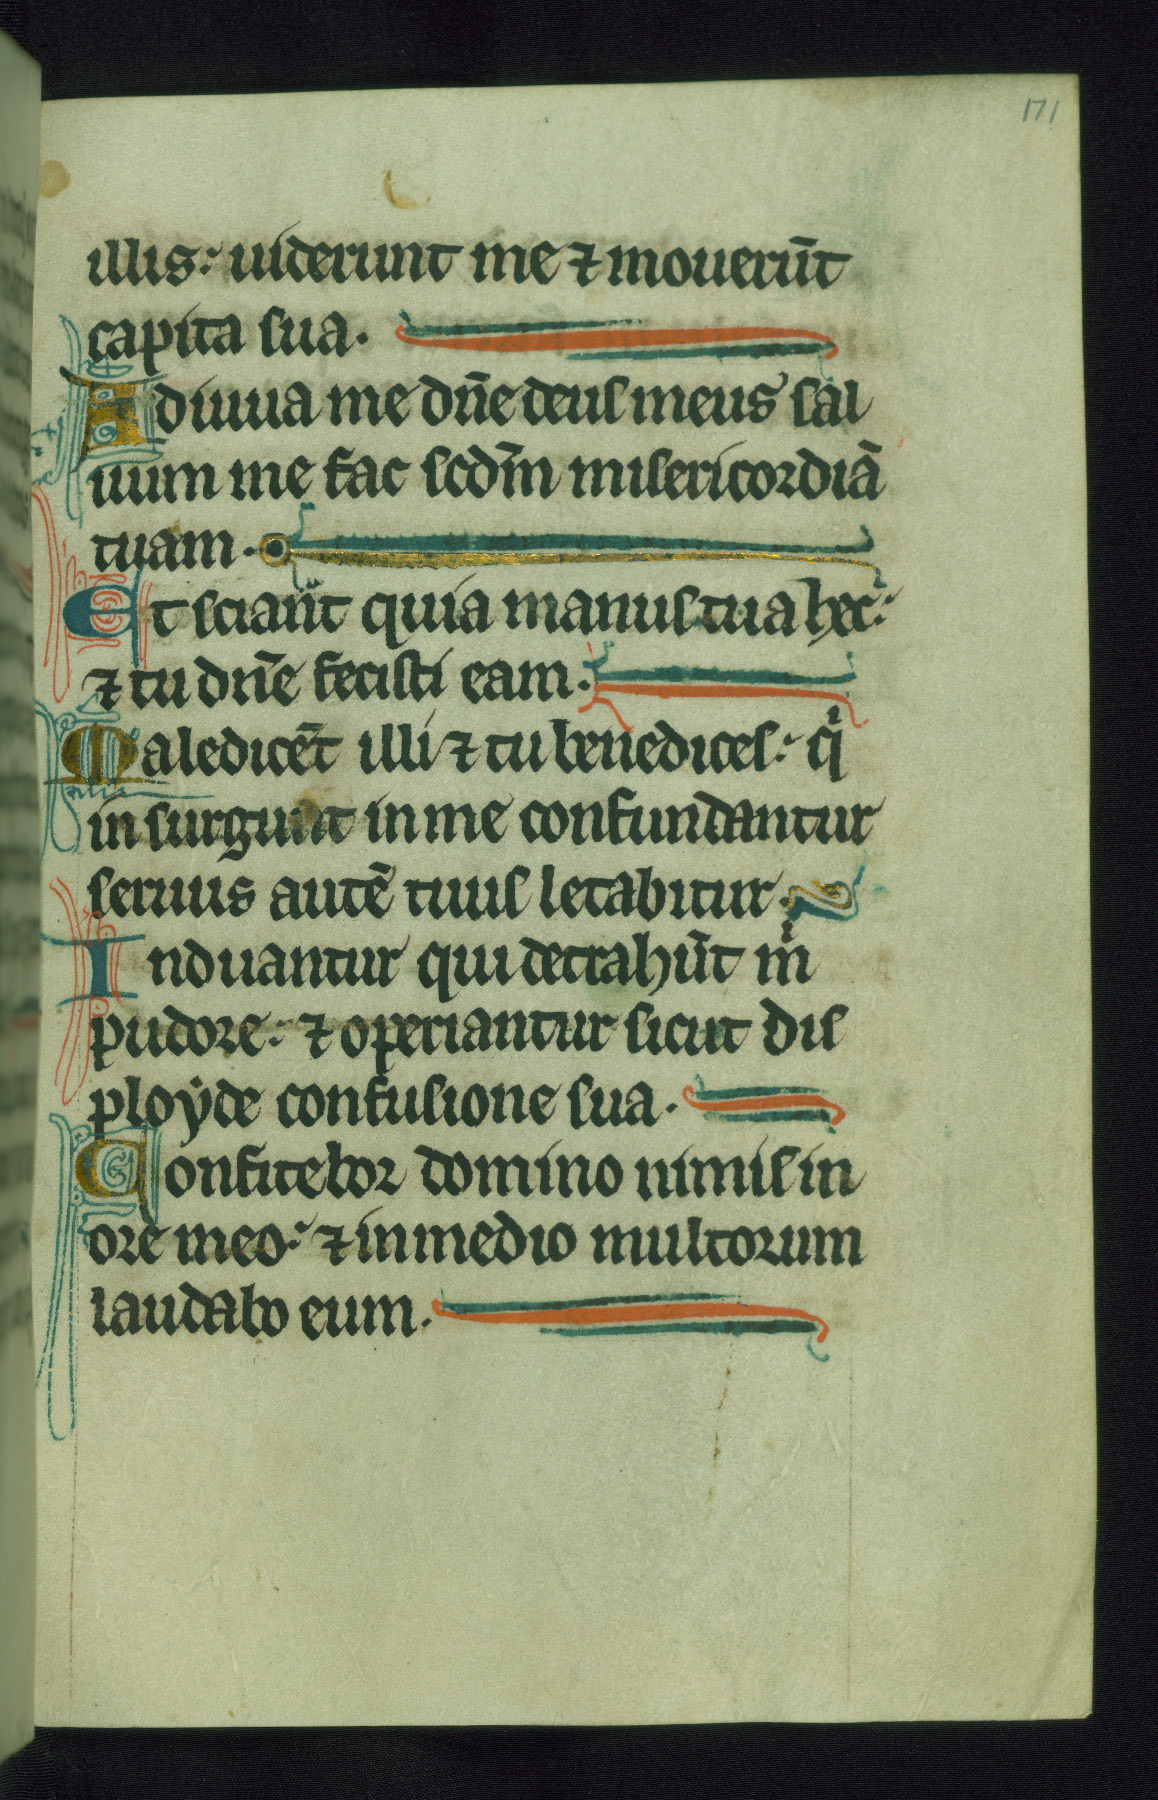 171
illis: uiderunt me ⁊ mouerūt
capita sua.
Adiuua me dn̄e deus meus sal
uum me fac scdm̄ misericordiā
tuam.
Et sciant quia manus tua hec:
⁊ tu dn̄e fecisti eam.
Maledicēt illi ⁊ tu benedices: qi
in surgunt in me confundantur
seruus autē tuus letabitur.
Induantur qui detrahūt mi
pudore: ⁊ operiantur sicut dis
ployde confusione sua.
Confitebor domino nimis in
ore meo: ⁊ in medio multorum
laudabo eum.